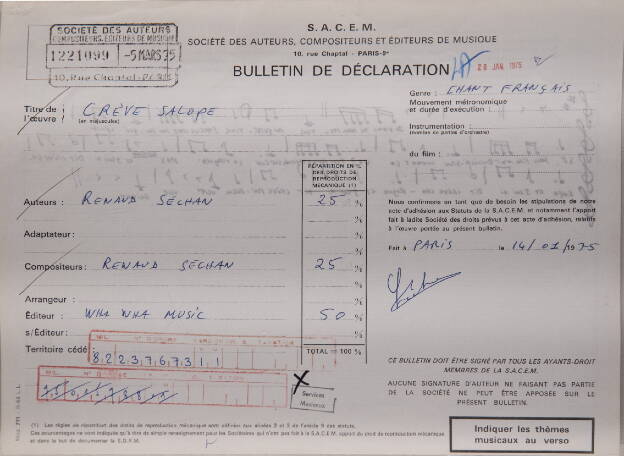 S.A.C.E.M.
SOCIÉTÉ DES AUTEURS, COMPOSITEURS ET ÉDITEURS DE MUSIQUE
10, rue Chaptal - PARIS-9e
BULLETIN DE DÉCLARATION
SOCIÉTÉ DES AUTEURS
COMPOSITEURS, ÉDITEURS DE MUSIQUE
1221099 -5 MARS 75
10, Rue Chaptal - PARIS
28 JAN. 1975
Titre de l'œuvre : CRÈVE SALOPE
(en majuscules)
Genre : CHANT FRANÇAIS
Mouvement métronomique
et durée d'exécution :
Instrumentation :
du film :
RÉPARTITION EN %
DES DROITS DE
REPRODUCTION
MÉCANIQUE (1)
Auteurs : RENAUD SÉCHAN 25 %
Adaptateur : %
Compositeurs : RENAUD SÉCHAN 25 %
Arrangeur : %
Éditeur : WHA WHA MUSIC 50 %
s/Éditeur : %
Territoire cédé : TOTAL = 100 %
8 2 2 3 7 6 7 3 1 1
Nous confirmons en tant que de besoin les stipulations de notre
acte d'adhésion aux Statuts de la S.A.C.E.M. et notamment l'apport
fait à ladite Société des droits prévus à cet acte d'adhésion, relatifs
à l'œuvre portée au présent bulletin.
Fait à PARIS le 14/01/1975
CE BULLETIN DOIT ÊTRE SIGNÉ PAR TOUS LES AYANTS-DROIT
MEMBRES DE LA S.A.C.E.M.
AUCUNE SIGNATURE D'AUTEUR NE FAISANT PAS PARTIE
DE LA SOCIÉTÉ NE PEUT ÊTRE APPOSÉE SUR LE
PRÉSENT BULLETIN.
X
Services
Musicaux
Indiquer les thèmes
musicaux au verso
(1) Les règles de répartition des droits de reproduction mécanique sont définies aux alinéas 2 et 3 de l'article 5 des statuts.
Ces pourcentages ne sont indiqués qu'à titre de simple renseignement pour les Sociétaires qui n'ont pas fait à la S.A.C.E.M. apport du droit de reproduction mécanique
et dans le but de documenter la S.D.R.M.